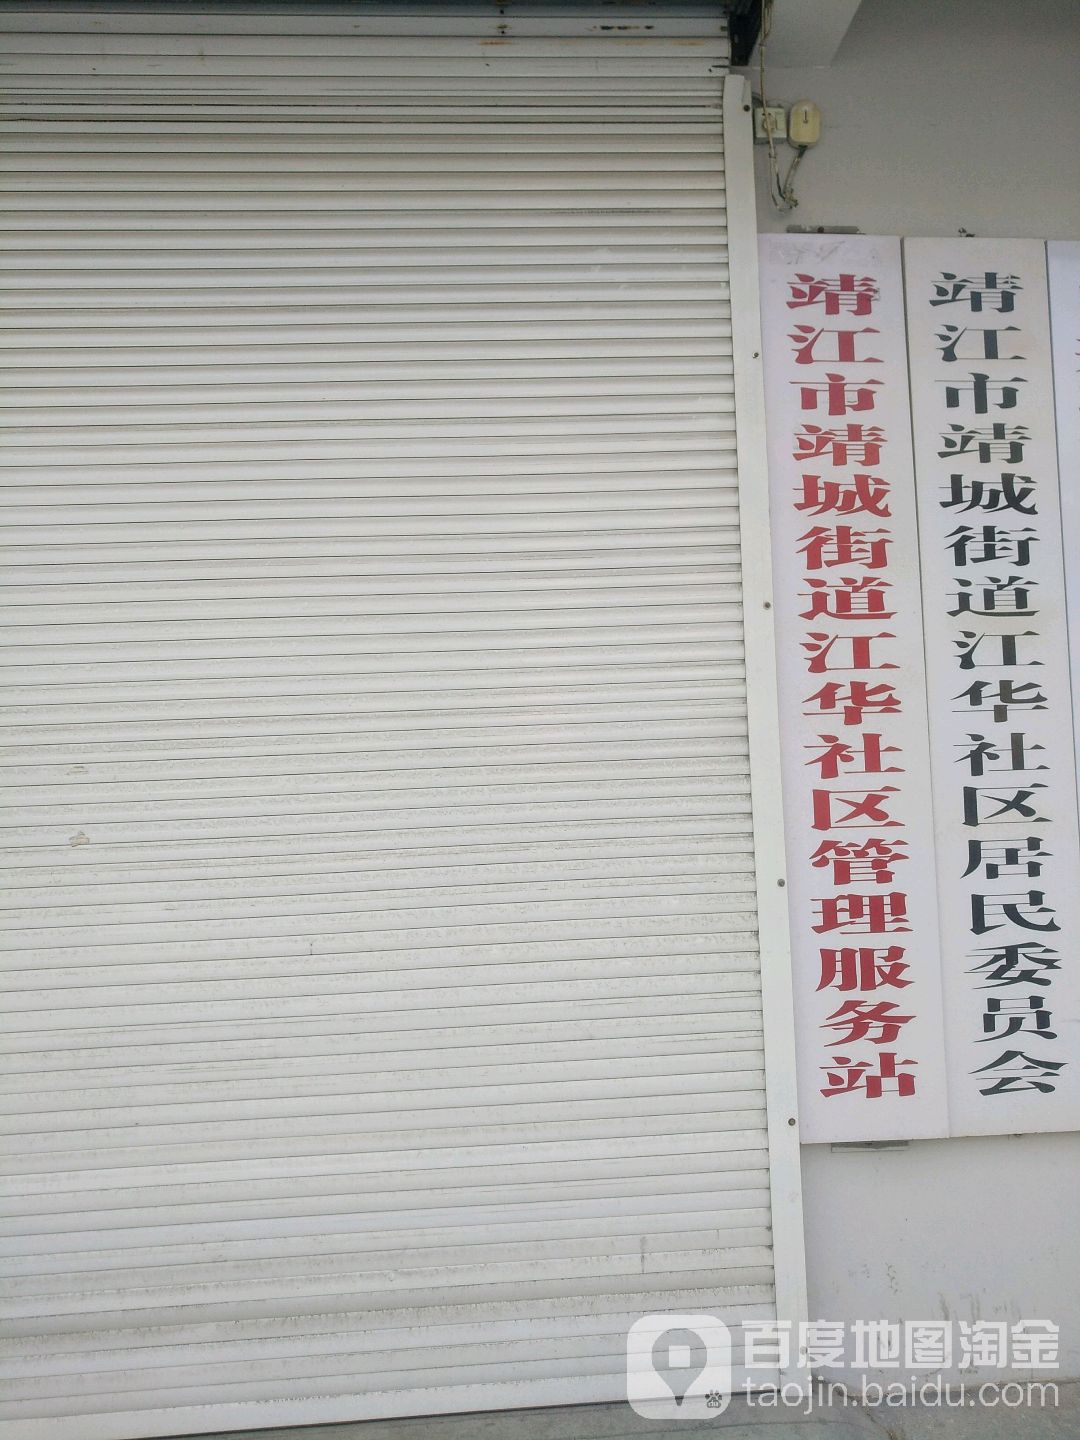 靖江市靖城街道江华社区管理服务站
靖江市靖城街道江华社区居民委员会
百度地图淘金
taojin.baidu.com